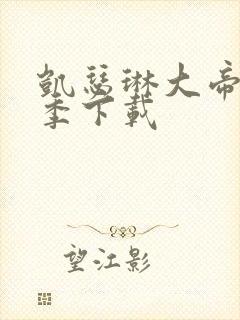 凯瑟琳大帝
季下载
望江影